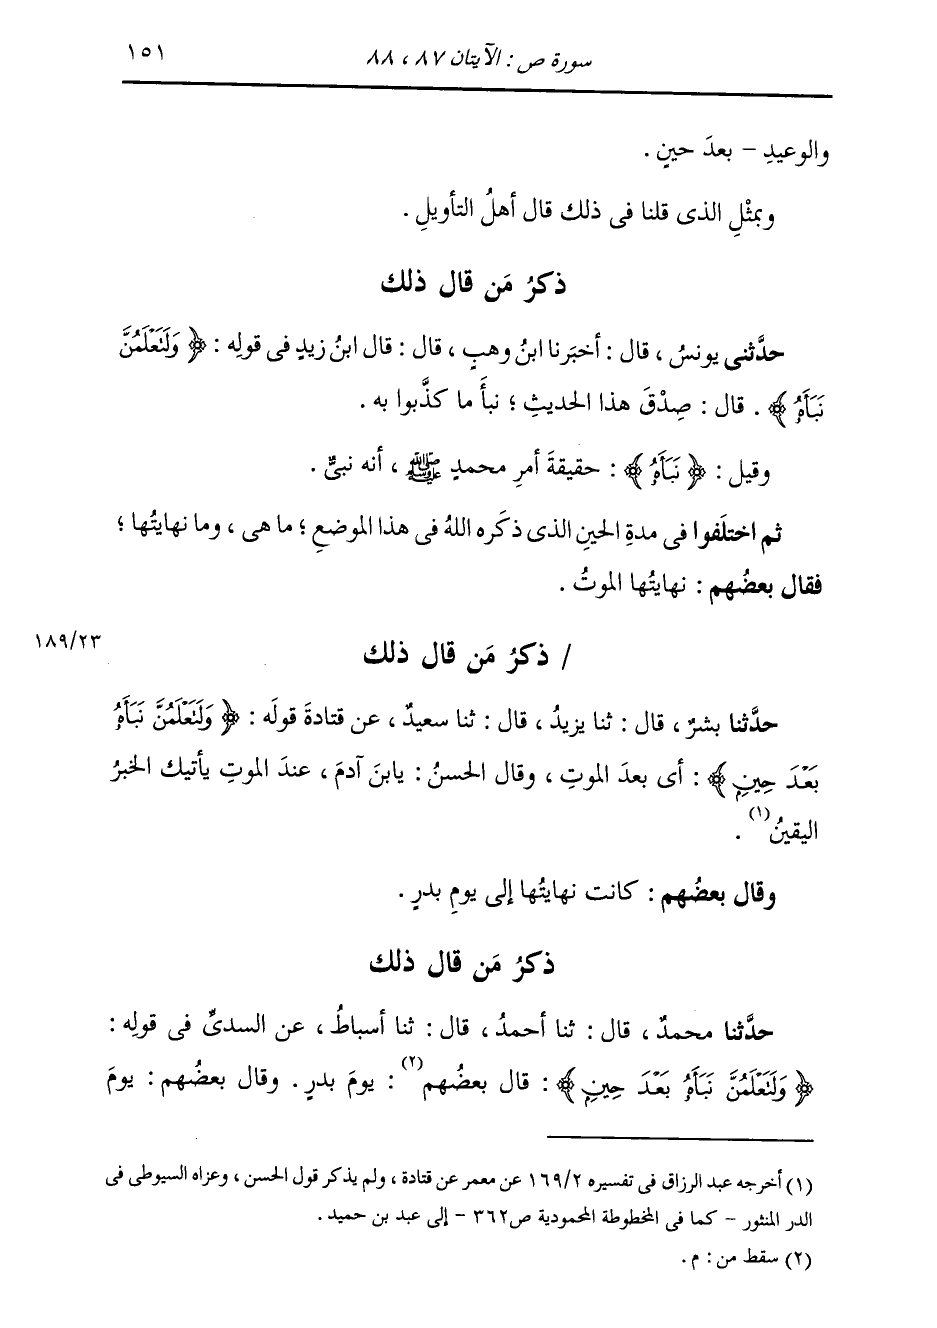 سورة ص : الآيتان ٨٧ ، ٨٨
١٥١
والوعيدِ – بعدَ حينٍ .
وبمثْلِ الذى قلنا فى ذلك قال أهلُ التأويلِ .
ذكرُ مَن قال ذلك
حدَّثنى يونسُ ، قال : أخبَرنا ابنُ وهبٍ ، قال : قال ابنُ زيدٍ فى قولِه : ﴿ وَلَتَعْلَمُنَّ
نَبَأَهُ ﴾ . قال : صِدْقَ هذا الحديثِ ؛ نبأَ ما كذَّبوا به .
وقيل : ﴿ نَبَأَهُ ﴾ : حقيقةَ أمرِ محمدٍ ﷺ ، أنه نبىٌّ .
ثم اختلَفوا فى مدةِ الحينِ الذى ذكَره اللهُ فى هذا الموضعِ ؛ ما هى ، وما نهايتُها ؛
فقال بعضُهم : نهايتُها الموتُ .
/ ذكرُ مَن قال ذلك
١٨٩/٢٣
حدَّثنا بشرٌ ، قال : ثنا يزيدُ ، قال : ثنا سعيدٌ ، عن قتادةَ قولَه : ﴿ وَلَتَعْلَمُنَّ نَبَأَهُ
بَعْدَ حِينٍ ﴾ : أى بعدَ الموتِ ، وقال الحسنُ : يابنَ آدمَ ، عندَ الموتِ يأتيك الخبرُ
اليقينُ (١) .
وقال بعضُهم : كانت نهايتُها إلى يومِ بدرٍ .
ذكرُ مَن قال ذلك
حدَّثنا محمدٌ ، قال : ثنا أحمدُ ، قال : ثنا أسباطُ ، عن السدىِّ فى قولِه :
﴿ وَلَتَعْلَمُنَّ نَبَأَهُ بَعْدَ حِينٍ ﴾ : قال بعضُهم (٢) : يومَ بدرٍ . وقال بعضُهم : يومَ
(١) أخرجه عبد الرزاق فى تفسيره ١٦٩/٢ عن معمر عن قتادة ، ولم يذكر قول الحسن ، وعزاه السيوطى فى
الدر المنثور – كما فى المخطوطة المحمودية ص٣٦٢ – إلى عبد بن حميد .
(٢) سقط من : م .